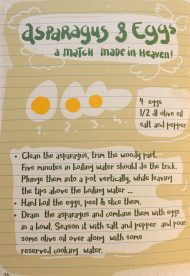 Asparagus & Eggs
a match made in Heaven!
4 eggs
1/2 dl olive oil
salt and pepper
• Clean the asparagus, trim the woody part.
Five minutes in boiling water should do the trick.
Plunge them into a pot vertically, while leaving
the tips above the boiling water ...
• Hard boil the eggs, peel & slice them.
• Drain the asparagus and combine them with eggs
in a bowl. Season it with salt and pepper and pour
some olive oil over along with some
reserved cooking water.